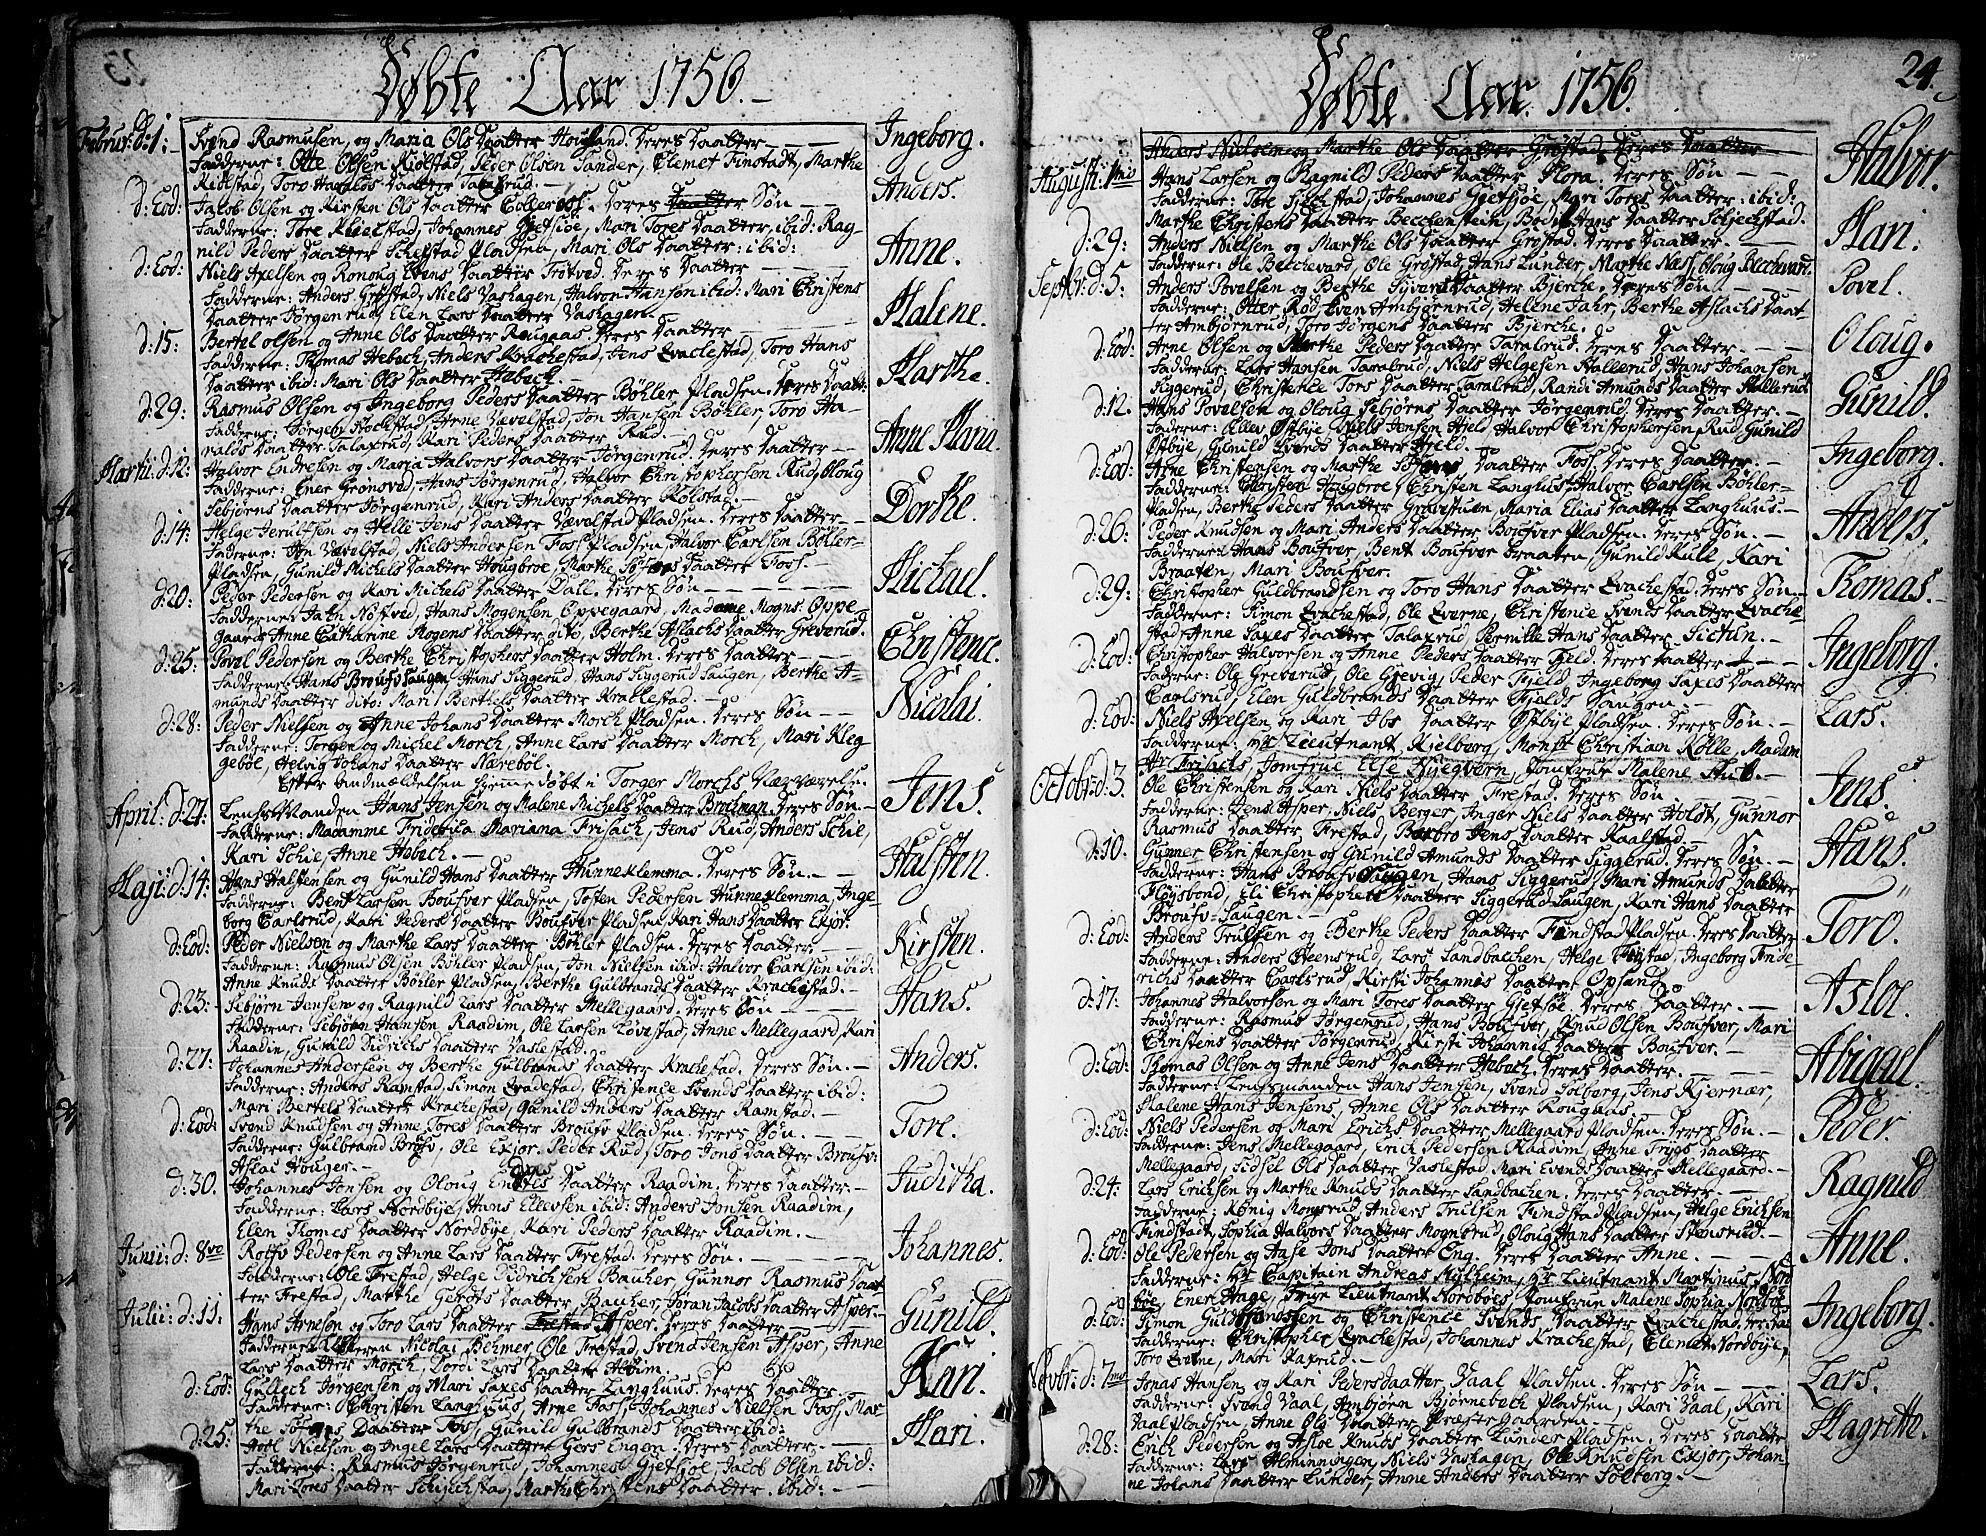 Døbte Aar 1756.
Februr: d: 1: Svend Rasmusen, og Maria Ols Daatter Deres Daatter Ingeborg.
Fadderne: Otte Olsen Peder Olsen Sander, Clemet Finstadt, Marthe
Toro Haralds Daatter
d: Eod: Jacob Olsen og Kirsten Ols Daatter Deres Søn Anders.
Fadderne: Tore Johannes Gjetsjøe, Mari Tores Daatter, ibid: Rag-
nild Peders Daatter Pladsen, Mari Ols Daatter: ibid:
d: Eod: Niels Axelsen og Ronoug Daatter Trötved. Deres Daatter Anne.
Fadderne: Anders Grøstad, Niels Vashagen, Halvor Hansen ibid: Mari Christens
Daatter Jørgenrud, Elen Lars Daatter Vashagen.
d: 15: Bertel Olsen og Anne Ols Daatter Rougaas. Deres Daatter Malene.
Fadderne: Thomas Hebech, Anders Krachestad, Jens Evachestad, Toro Hans
Daatter ibid: Mari Ols Daatter Hebech.
d: 29: Rasmus Olsen og Ingeborg Peders Daatter Böhler Pladsen. Deres Daatt: Marthe.
Fadderne: Arne Vævelstad, Jon Hansen Böhler, Toro Ha-
ralds Daatter Kari Peders Daatter Rud.
Martii: d: 12: Halvor Endresen og Maria Halvors Daatter Jørgenrud. Deres Daatter Anne Maria.
Fadderne: Ener Grönsved, Hans Jørgenrud, Halvor Christophersen Rud, Oloug
Sebjörns Daatter Jørgenrud, Kari Anders Daatter Kolstad.
d: 14: Helge og Helle Jens Daatter Vævelstad Pladsen. Deres Daatter Dorthe.
Fadderne: Jon Vævelstad, Niels Andersen Foss Pladsen, Halvor Carlsen Böhler-
Pladsen, Gunild Michels Daatter Hougbroe, Marthe Daatter Foss.
d: 20: Peder Pedersen og Kari Michels Daatter Dall. Deres Søn Michael.
Fadderne: Nöstved, Hans Mogensen Oppegaard, Madame Mogns: Oppe
gaard, Anne Catharine Mogens Daatter dito, Berthe Aslachs Daatter Greverud.
d: 25: Povel Pedersen og Berthe Christophers Daatter Holm. Deres Daatter Christence.
Fadderne: Hans Hans Siggerud, Hans Siggerud Saugen, Berthe A-
munds Daatter dito: Mari Berthels Daatter Krachestad.
d: 28: Peder Nielsen og Anne Johans Daatter Morch Pladsen. Deres Søn Nicolai.
Fadderne: Torger og Michel Morch, Anne Lars Daatter Morch, Mari Kleg
geböe, Helvig Johans Daatter Næreböl.
Efter anmeldelsen hjemme döbt i Torger Morchs Nærværelse.
April: d: 27: Lensmanden Hans Jensen og Malene Michels Daatter Deres Søn Jens.
Fadderne: Madamme Friderica Mariana Frisach, Jens Rud, Anders Schie,
Kari Schie, Anne Hebech.
Maji: d: 14: Hans Halstensen og Gunild Hans Daatter Hunneklemma. Deres Søn. Halsten.
Fadderne: Bent Larsen Boufver Pladsen, Tosten Pedersen Hunneklemma, Inge-
borg Carlsrud, Kari Peders Daatter Boufver Pladsen, Kari Hans Daatter
d: Eod: Peder Nielsen og Marthe Lars Daatter Böhler Pladsen. Deres Daatter. Kirsten.
Fadderne: Rasmus Olsen Böhler Pladsen, Jon Nielsen ibid: Halvor Carlsen ibid:
Anne Knuds Daatter Böhler Pladsen, Berthe Gulbrands Daatter Krachestad.
d: 23: Sebjörn Jensen og Ragnild Lars Daatter Mellegaard. Deres Søn Hans.
Fadderne: Sebjörn Hansen Raadim, Ole Larsen Anne Mellegaard, Kari
Raadim, Gunild Didrichs Daatter Vaslestad.
d: 27: Johannes Andersen og Berthe Gulbrands Daatter Krachestad. Deres Søn. Anders.
Fadderne: Anders Ramstad, Simon Christence Svends Daatter ibid:
Mari Bertels Daatter Krachestad, Gunild Anders Daatter Ramstad.
d: Eod: Svend Knudsen og Anne Tores Daatter Broufv Pladsen. Deres Søn. Tore.
Fadderne: Gulbrand Ole Exjor. Peder Rud, Toro Jons Daatter
Aslac
d: 30. Johannes Jonsen og Oloug Daatter Raadim. Deres Daatter. Juditha.
Fadderne: Lars Nordbye, Hans Ellevsen ibid: Anders Jonsen Raadim,
Elen Daatter Nordbye Kari Peders Daatter Raadim.
Junii: d: 8vo Rolfv Pedersen og Anne Lars Daatter Frestad. Deres Søn. Johannes.
Fadderne: Ole Frestad, Helge Didrichsen Baucher, Gunnor Rasmus Daat
ter Frestad, Marthe Daatter Baucher, Jøran Jacobs Daatter Asper.
Julii: d: 11: Hans Arnesen og Toro Lars Daatter Asper. Deres Daatter Gunild.
Fadderne: Nicolai Böhmer, Ole Frestad, Svend Jensen Asper, Anne
Lars Daatter Morch, Dordi Lars Daatter
d: Eod: Gullech Jørgensen og Mari Saxes Daatter Langhuus. Deres Daatter Kari.
Fadderne: Christen Langhuus, Arne Foss, Johannes Nielsen Foss, Mar-
the Daatter Foss, Gunild Gulbrands Daatter ibid:
d: 25: Nielsen og Ingel Lars Daatter Deres Daatter. Mari.
Fadderne: Rasmus Jørgenrud, Johannes Gjetsjöe, Jacob Olsen ibid:
Mari Tores Daatter Marthe Christens Daatter. ibid:
24.
Døbte Aar. 1756.
Anders Nielsen og Marthe Ols Daatter Grøstad. Deres Daatter
August: 1mo Hans Larsen og Ragnild Peders Daatter Flora. Deres Søn Halvor.
Fadderne: Tore Johannes Gjetsjøe, Mari Tores Daatter ibid:
Marthe Christens Daatter Bodil Hans Daatter
d: 29: Anders Nielsen og Marthe Ols Daatter Grøstad. Deres Daatter. Mari.
Fadderne: Ole Becchevard, Ole Grøstad, Hans Lunder, Marthe Næss, Oloug Becchevard.
Septbr: d: 5: Anders Povelsen og Berthe Daatter Bjerche. Deres Søn Povel.
Fadderne: Otter Rød, Even Ambjørnrud, Helene Fahr, Berthe Aslachs Daat-
ter Ambjørnrud, Toro Jørgens Daatter Bjerche.
d: Eod: Arne Olsen og Marthe Peders Daatter Taralrud. Deres Daatter. Oloug.
Fadderne: Lars Hansen Taralrud, Niels Helgesen Stallerud, Hans Johansen
Siggerud, Christence Tors Daatter Taralrud, Randi Amunds Daatter Stallerud.
d: 12. Hans Povelsen og Oloug Sebjørns Daatter Jørgenrud. Deres Daatter. Gunild.
Fadderne: Ellev Østbye, Niels Jensen Hjeld, Halvor Christophersen Rud, Gunild
Østbye, Gunild Svends Daatter Hjeld.
d: Eod: Arne Christensen og Marthe Daatter Foss. Deres Daatter. Ingeborg.
Fadderne: Christen Hougbroe, Christen Langhuus, Halvor Carlsen Böhler-
Pladsen, Berthe Peders Daatter Maria Elias Daatter Langhuus.
d: 26: Peder Knudsen og Mari Anders Daatter Boufver Pladsen. Deres Søn. Anders.
Fadderne: Hans Boufver, Bent Boufver Braaten, Gunild Kari
Braaten, Mari Boufver.
d: 29: Christopher Guldbrandsen og Toro Hans Daatter Evachestad. Deres Søn. Thomas.
Fadderne: Simon Evachestad, Ole Christence Svends Daatter Evache-
stad, Anne Saxes Daatter Pernille Hans Daatter
d: Eod: Christopher Halvorsen og Anne Peders Daatter Fjeld. Deres Daatter Ingeborg.
Fadderne: Ole Greverud, Ole Grevig, Peder Fjeld, Ingeborg Saxes Daatter
Carlsrud, Elen Guldbrands Daatter Fjelds Saugen.
d: Eod: Niels Axelsen og Kari Ibs Daatter Østbye Pladsen. Deres Søn. Lars.
Fadderne: Hr Lieutnant Kjelborg, Monsr Christian Kölle, Madam
Frisachs, Jomfrue Else Jomfrue Malene
Octobr: d: 3. Ole Christensen og Kari Niels Daatter Frestad. Deres Søn Jens.
Fadderne: Jens Asper, Niels Berger, Inger Niels Daatter Holdt, Gunnor
Rasmus Daatter Frestad, Jens Daatter
d: 10. Gunner Christensen og Gunild Amunds Daatter Siggerud. Deres Søn. Hans.
Fadderne: Hans Hans Siggerud, Mari Amunds Daatter
Fløysbond, Eli Christophers Daatter Siggerud Saugen, Kari Hans Daatter
Broufv-Saugen.
d: Eod: Anders Trulsen og Berthe Peders Daatter Findstad Pladsen. Deres Daatter Toro.
Fadderne: Anders Steensrud, Lars Sandbachen, Helge Ingeborg Inde-
richs Daatter Carlsrud, Kirsti Johannes Daatter Opsand.
d: 17: Johannes Halvorsen og Mari Tores Daatter Gjetsöe. Deres Daatter. Asloe.
Fadderne: Rasmus Jørgenrud, Hans Boufver, Knud Olsen Boufver, Mari
Christens Daatter Jørgenrud, Kirsti Johannis Daatter Boufver.
d: Eod: Thomas Olsen og Anne Jens Daatter Hebech. Deres Daatter. Abigael.
Fadderne: Lensmanden Hans Jensen, Svend Solberg, Jens Kjernær,
Malene Hans Jensens, Anne Ols Daatter Rougaas.
d: Eod: Niels Pedersen og Mari Erichs Daatter Mellegaard Pladsen. Deres Søn. Peder.
Fadderne: Jens Mellegaard, Erich Pedersen Raadim, Anne Trygs Daatter
Mellegaard, Sidsel Ols Daatter Vaslestad, Mari Evends Daatter Mellegaard.
d: 24: Lars Erichsen og Marthe Knuds Daatter Sandbachen. Deres Daatter. Ragnild
Fadderne: König Monsrud, Anders Trulsen Findstad Pladsen, Helge Erichsen
Findstadt, Sophia Halvors Daatter Mognsrud, Oloug Hans Daatter Stensrud.
d: Eod: Ole Pedersen og Aase Jons Daatter Eng. Deres Daatter Anne. Anne.
Fadderne: Hr Capitain Andreas Mylheim, Hr Lieutnant Martinus Nord
böe, Ener Hage, Frue Lieutnant Nordböes, Jomfrue Malene Sophia Nordböe
d: Eod: Simon Guldbrandsen og Christence Svends Daatter Evachestad. Ingeborg.
Fadderne: Christopher Evachestad, Johannes Krachestad, Clemet Nordbye,
Toro Mari
Novbr: d: 7mo Jonas Hansen og Kari Pedersdaatter Vaal Pladsen. Deres Søn Lars.
Fadderne: Svend Vaal, Ambjørn Bjørnebech Pladsen, Kari Vaal, Kari
Vaal Pladsen, Anne Ols Daatter Præstegaarden.
d: 28: Erich Pedersen og Asloe Knuds Daatter Lunder Pladsen. Deres Daatter Magrette.
Fadderne: Lars Alminningen, Niels Vashagen, Ole Knudsen Exjor, Johan-
ne Johans Daatter Lunder, Anne Anders Daatter Solberg.